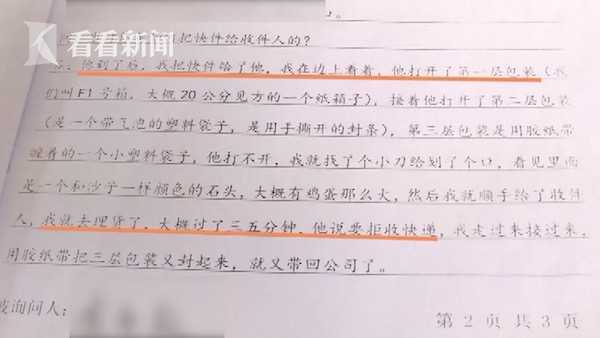 看看新闻
把快件给收件人的?
他到了后,我把快件给了他,我在边上看着,他打开了第一层包装(我
们叫F1号箱,大概20公分见方的一个纸箱子),接着他打开了第二层包装
(是一个带气泡的塑料袋子,是用手撕开的封条),第三层包装是用胶纸带
缠着的一个小塑料袋子,他打不开,我就找了个小刀给划了个口,看见里面
是一个和沙子一样颜色的石头,大概有鸡蛋那么大,然后我就顺手给了收件
人,我就去理货了,大概过了三五分钟,他说要拒收快递,我走过来接过来,
用胶纸带把三层包装又封起来,就又带回公司了。
被询问人:
第 2 页 共 3 页